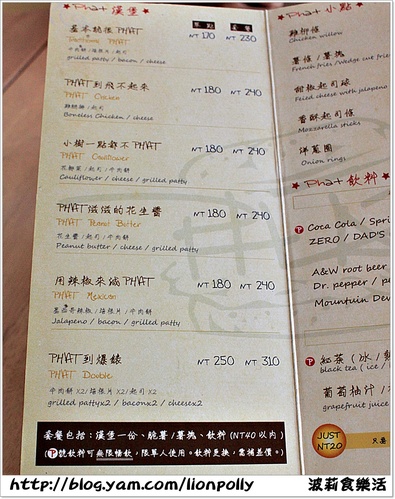 Phat 漢堡
單點 套餐
基本底限PHAT
NT 170 NT 230
牛肉餅/培根片/起司
grilled patty / bacon / cheese
PHAT到飛不起來
PHAT Chicken
NT 180 NT 240
雞腿排/起司
Boneless Chicken / cheese
小樹一點都不PHAT
PHAT Cauliflower
NT 180 NT 240
花椰菜/起司/牛肉餅
Cauliflower / cheese / grilled patty
PHAT滋滋的花生醬
PHAT Peanut Butter
NT 180 NT 240
花生醬/起司/牛肉餅
Peanut butter / cheese / grilled patty
用辣椒來減PHAT
PHAT Mexican
NT 180 NT 240
墨西哥辣椒/培根片/牛肉餅
Jalapeno / bacon / grilled patty
PHAT到爆錶
PHAT Double
NT 250 NT 310
牛肉餅X2/培根片X2/起司X2
grilled pattyx2 / baconx2 / cheesex2
套餐包括：漢堡一份、脆薯/薯捲、飲料(NT40以內)
(P號飲料可無限暢飲，限單人使用。飲料更換，需補差價。)
Phat 小點
雞柳條
Chicken willow
薯條/薯塊
French fries /Wedge cut fries
甜椒起司球
Fried cheese with jalapeno
香酥起司條
Mozzarella sticks
洋蔥圈
Onion rings
Phat 飲料
P Coca Cola / Spri
ZERO / DAD'S
A&W root beer
Dr. pepper / p
Mountuin Dew
P 紅茶(冰/熱
black tea ( ice /
葡萄柚汁
grapefruit juice
JUST NT20
只要
http://blog.yam.com/lionpolly 波莉食樂活